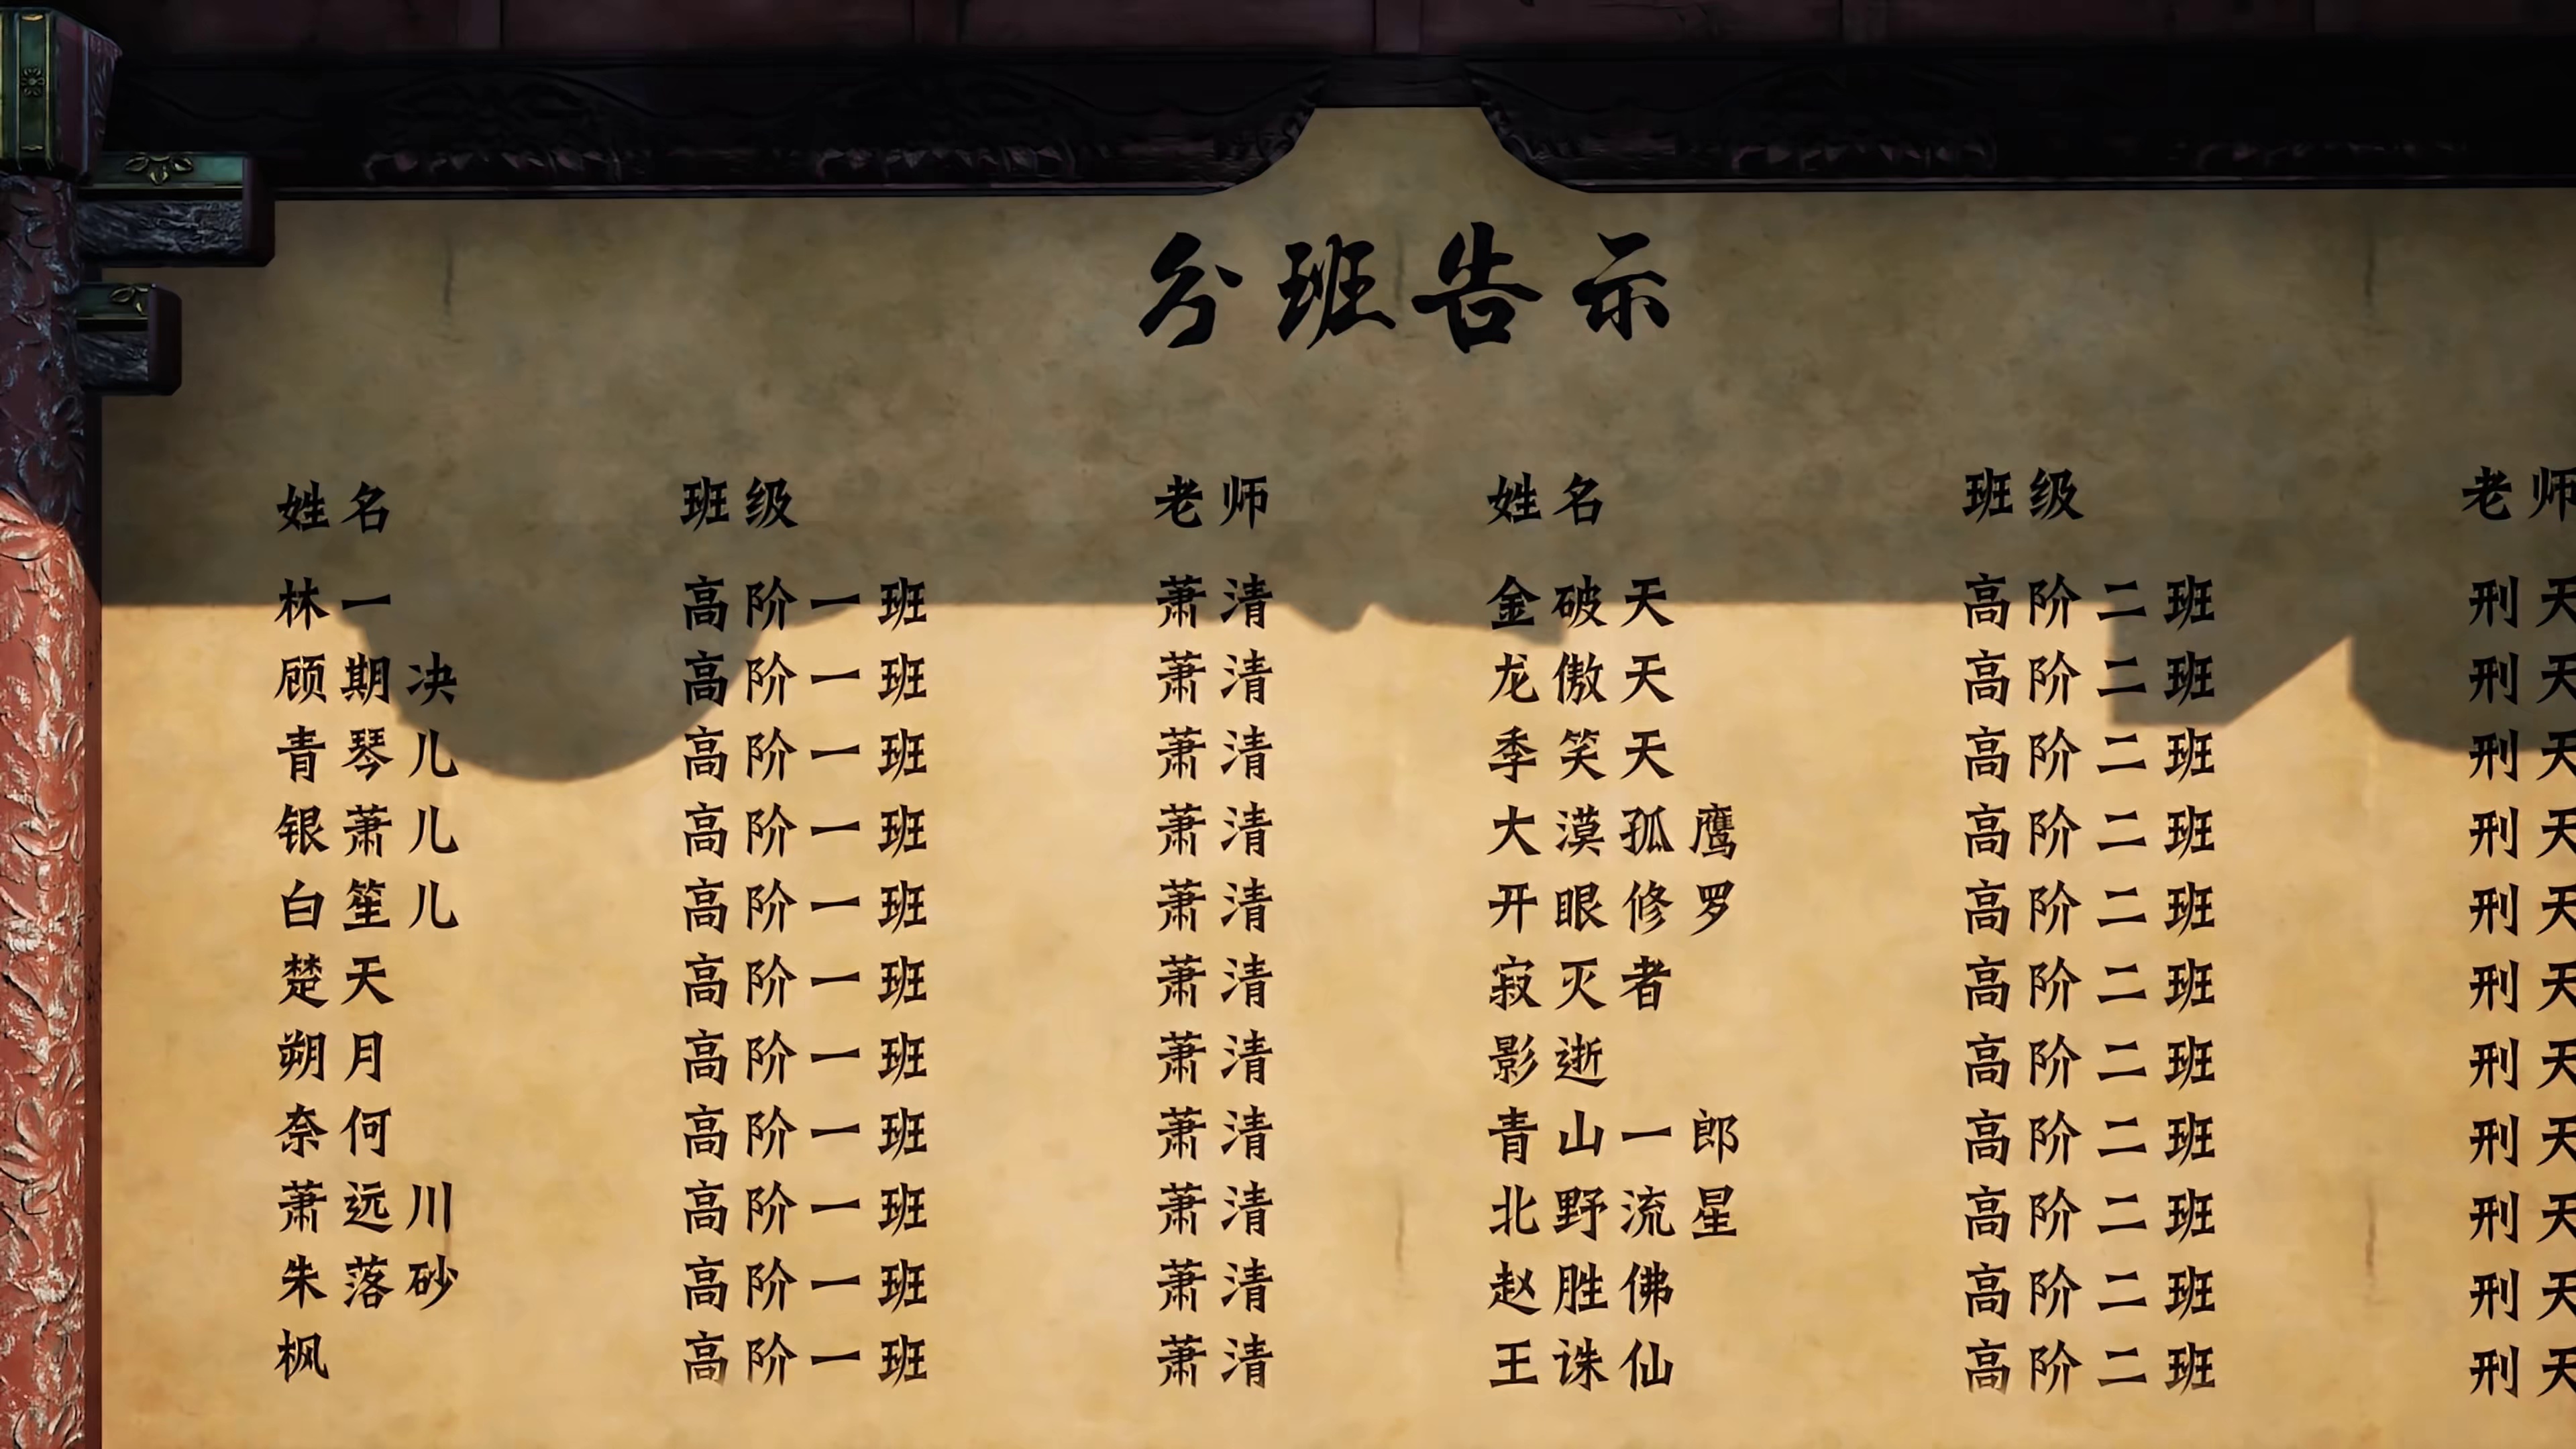 分班告示
姓名 班级 老师 姓名 班级 老师
林一 高阶一班 萧清 金破天 高阶二班 刑天
顾期决 高阶一班 萧清 龙傲天 高阶二班 刑天
青琴儿 高阶一班 萧清 季笑天 高阶二班 刑天
银萧儿 高阶一班 萧清 大漠孤鹰 高阶二班 刑天
白笙儿 高阶一班 萧清 开眼修罗 高阶二班 刑天
楚天 高阶一班 萧清 寂灭者 高阶二班 刑天
朔月 高阶一班 萧清 影逝 高阶二班 刑天
奈何 高阶一班 萧清 青山一郎 高阶二班 刑天
萧远川 高阶一班 萧清 北野流星 高阶二班 刑天
朱落砂 高阶一班 萧清 赵胜佛 高阶二班 刑天
枫 高阶一班 萧清 王诛仙 高阶二班 刑天